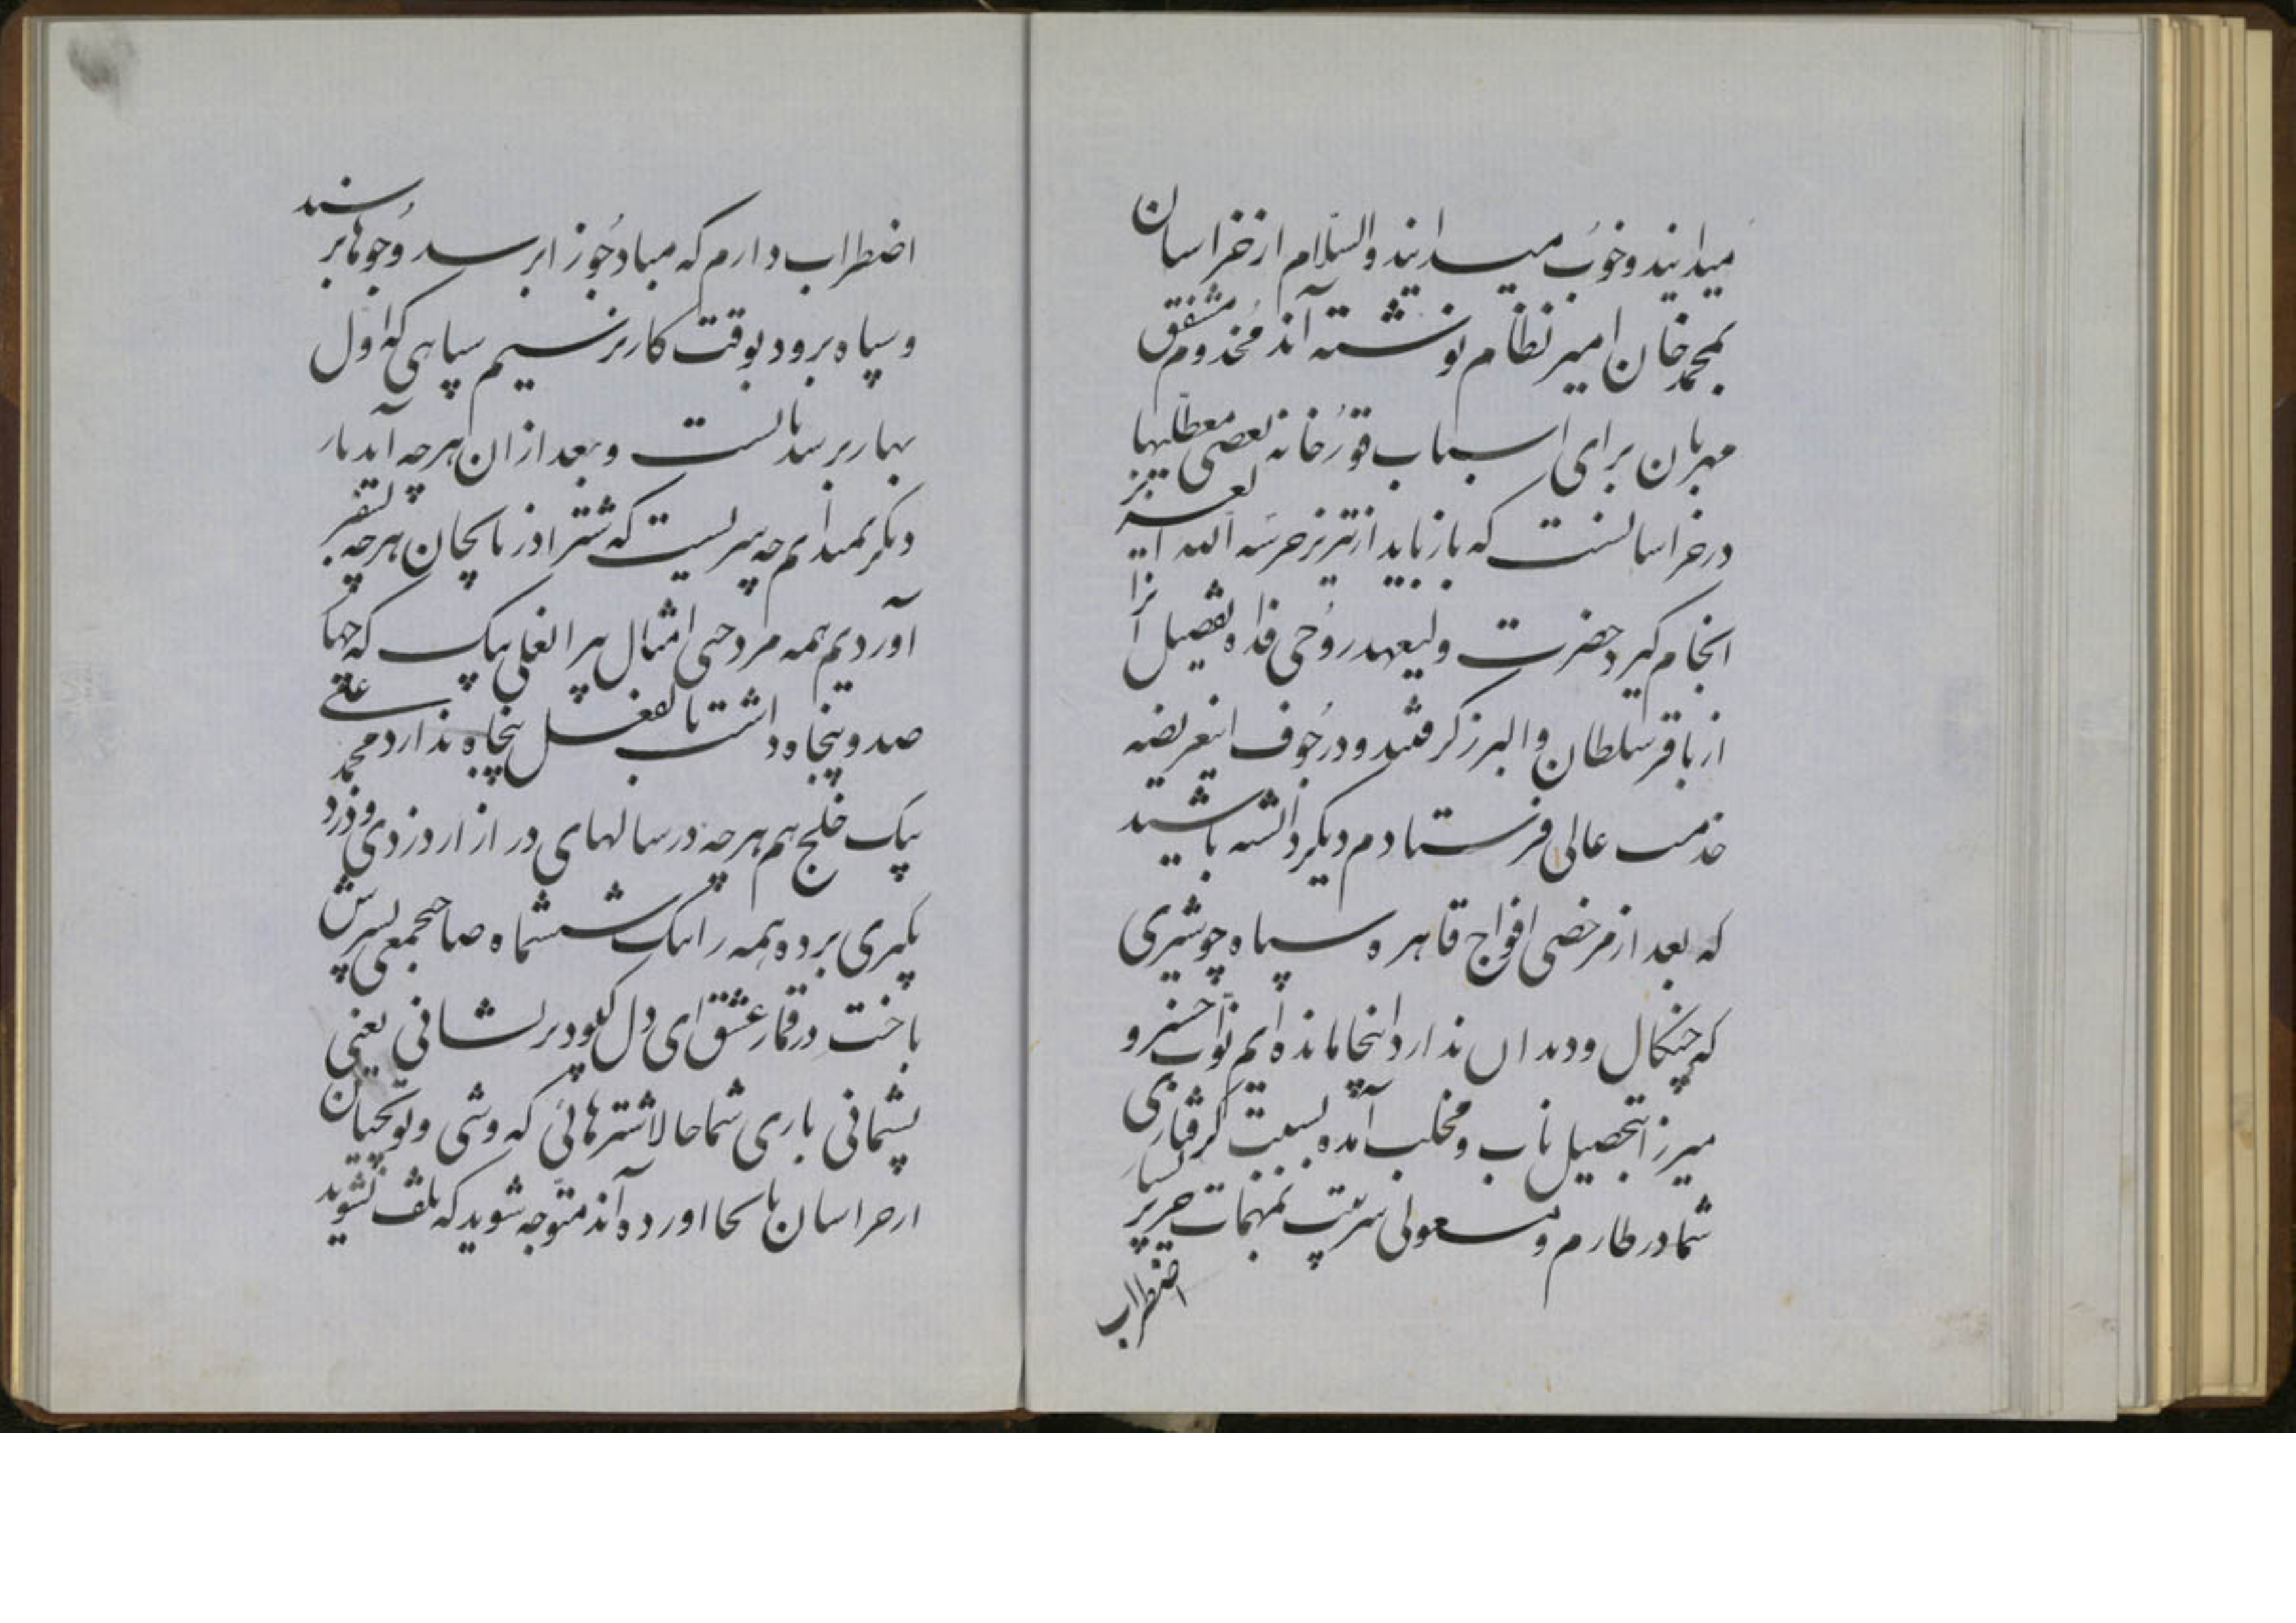 میدانید و خوب میدانید والسلام از خراسان
بمحمد خان امیر نظام نوشته‌اند مخدوم مشفق
مهربان برای اسباب قورخانه بعضی معطلیها
در خراسانست که باز باید از تبریز حرسه الله
انجام گیرد حضرت ولیعهد روحی فداه تفصیل آنرا
از باقر سلطان و البرز گرفتند و در جوف اینعریضه
خدمت عالی فرستادم دیگر دانسته باشید
که بعد از مرخصی افواج قاهره و سپاه چو شیری
که چنگال و دندان ندارد اینجا مانده‌ایم نواب خسرو
میرزا بتحصیل ناب و مخلب آمده بسبب گرفتاری
شما در طارم و مشغولی سرتیپ بمهمات
اضطراب
اضطراب دارم که مبادا جوزا برسد و جوها برسند
و سپاه برود بوقت کار نرسیم سپاهی که اول
بهار برسد بماست و بعد از آن هرچه آید بار
دیگر نمیدانم چه سریست که شتر آذربایجان هرچه
آوردیم همه مرد حتی امثال پیرالغلی بیک که
صد و پنجاه داشت بالفعل پنجاه ندارد محمد علی
بیک خلج هم هرچه در سالهای دراز از دزدی و دزد
بگیری برده همه را بیک ششماه صاحبجمعی پسرش
باخت در قمار عشق ای دل کی بود پریشانی یعنی
پشیمانی باری شما حالا شترهائی که وشی و توپچیان
از خراسان باینجا آورده‌اند متوجه شوید که تلف نشوند